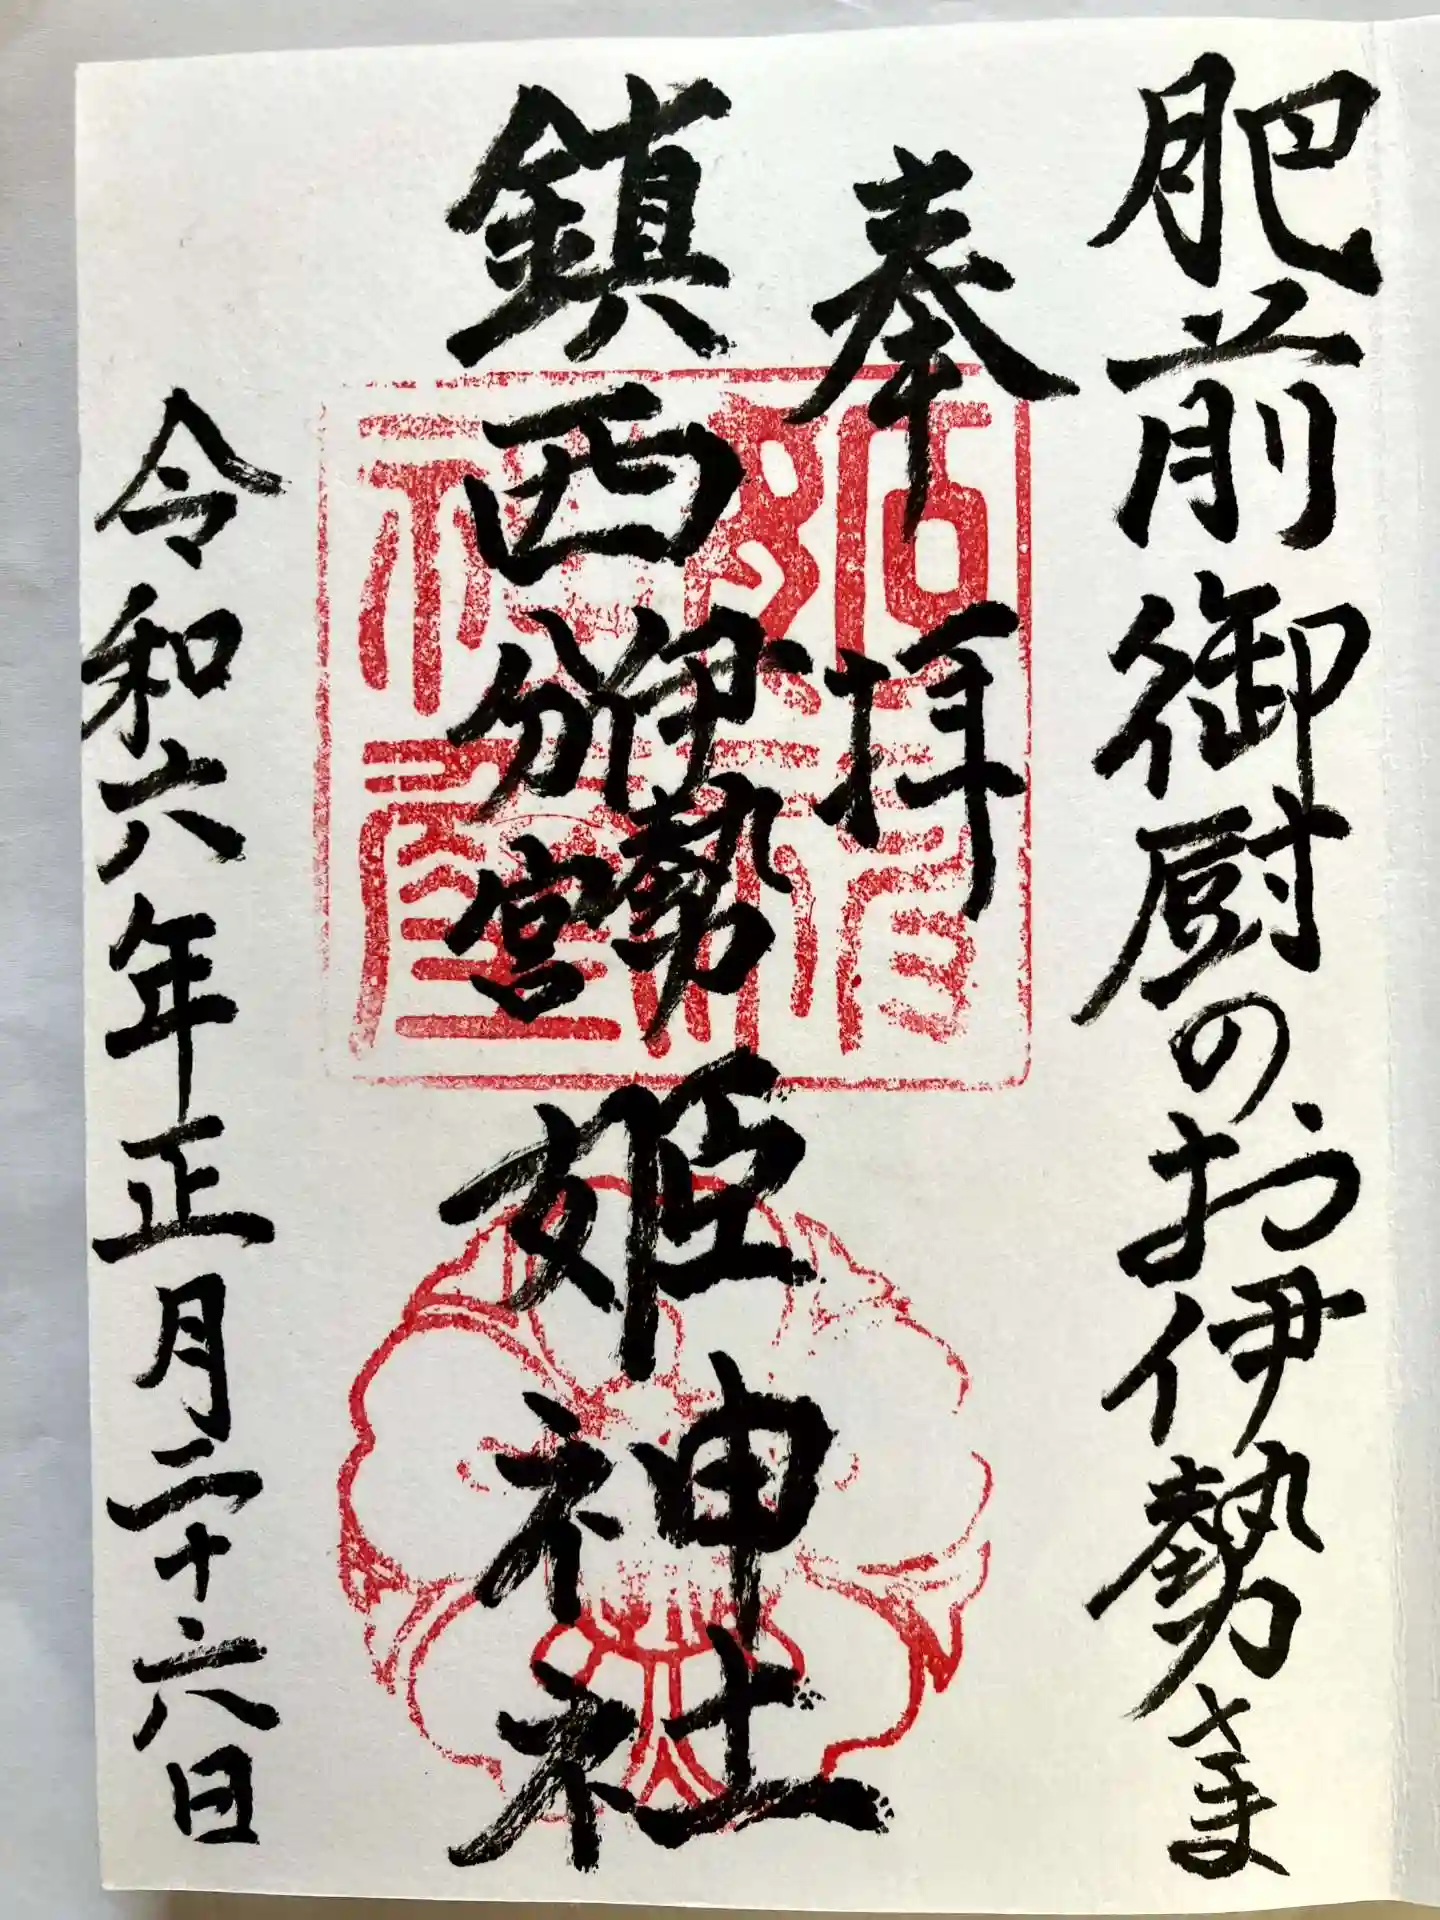 肥前御厨のお伊勢さま
奉拝
鎮西
伊勢
分宮
姫神社
令和六年正月二十六日